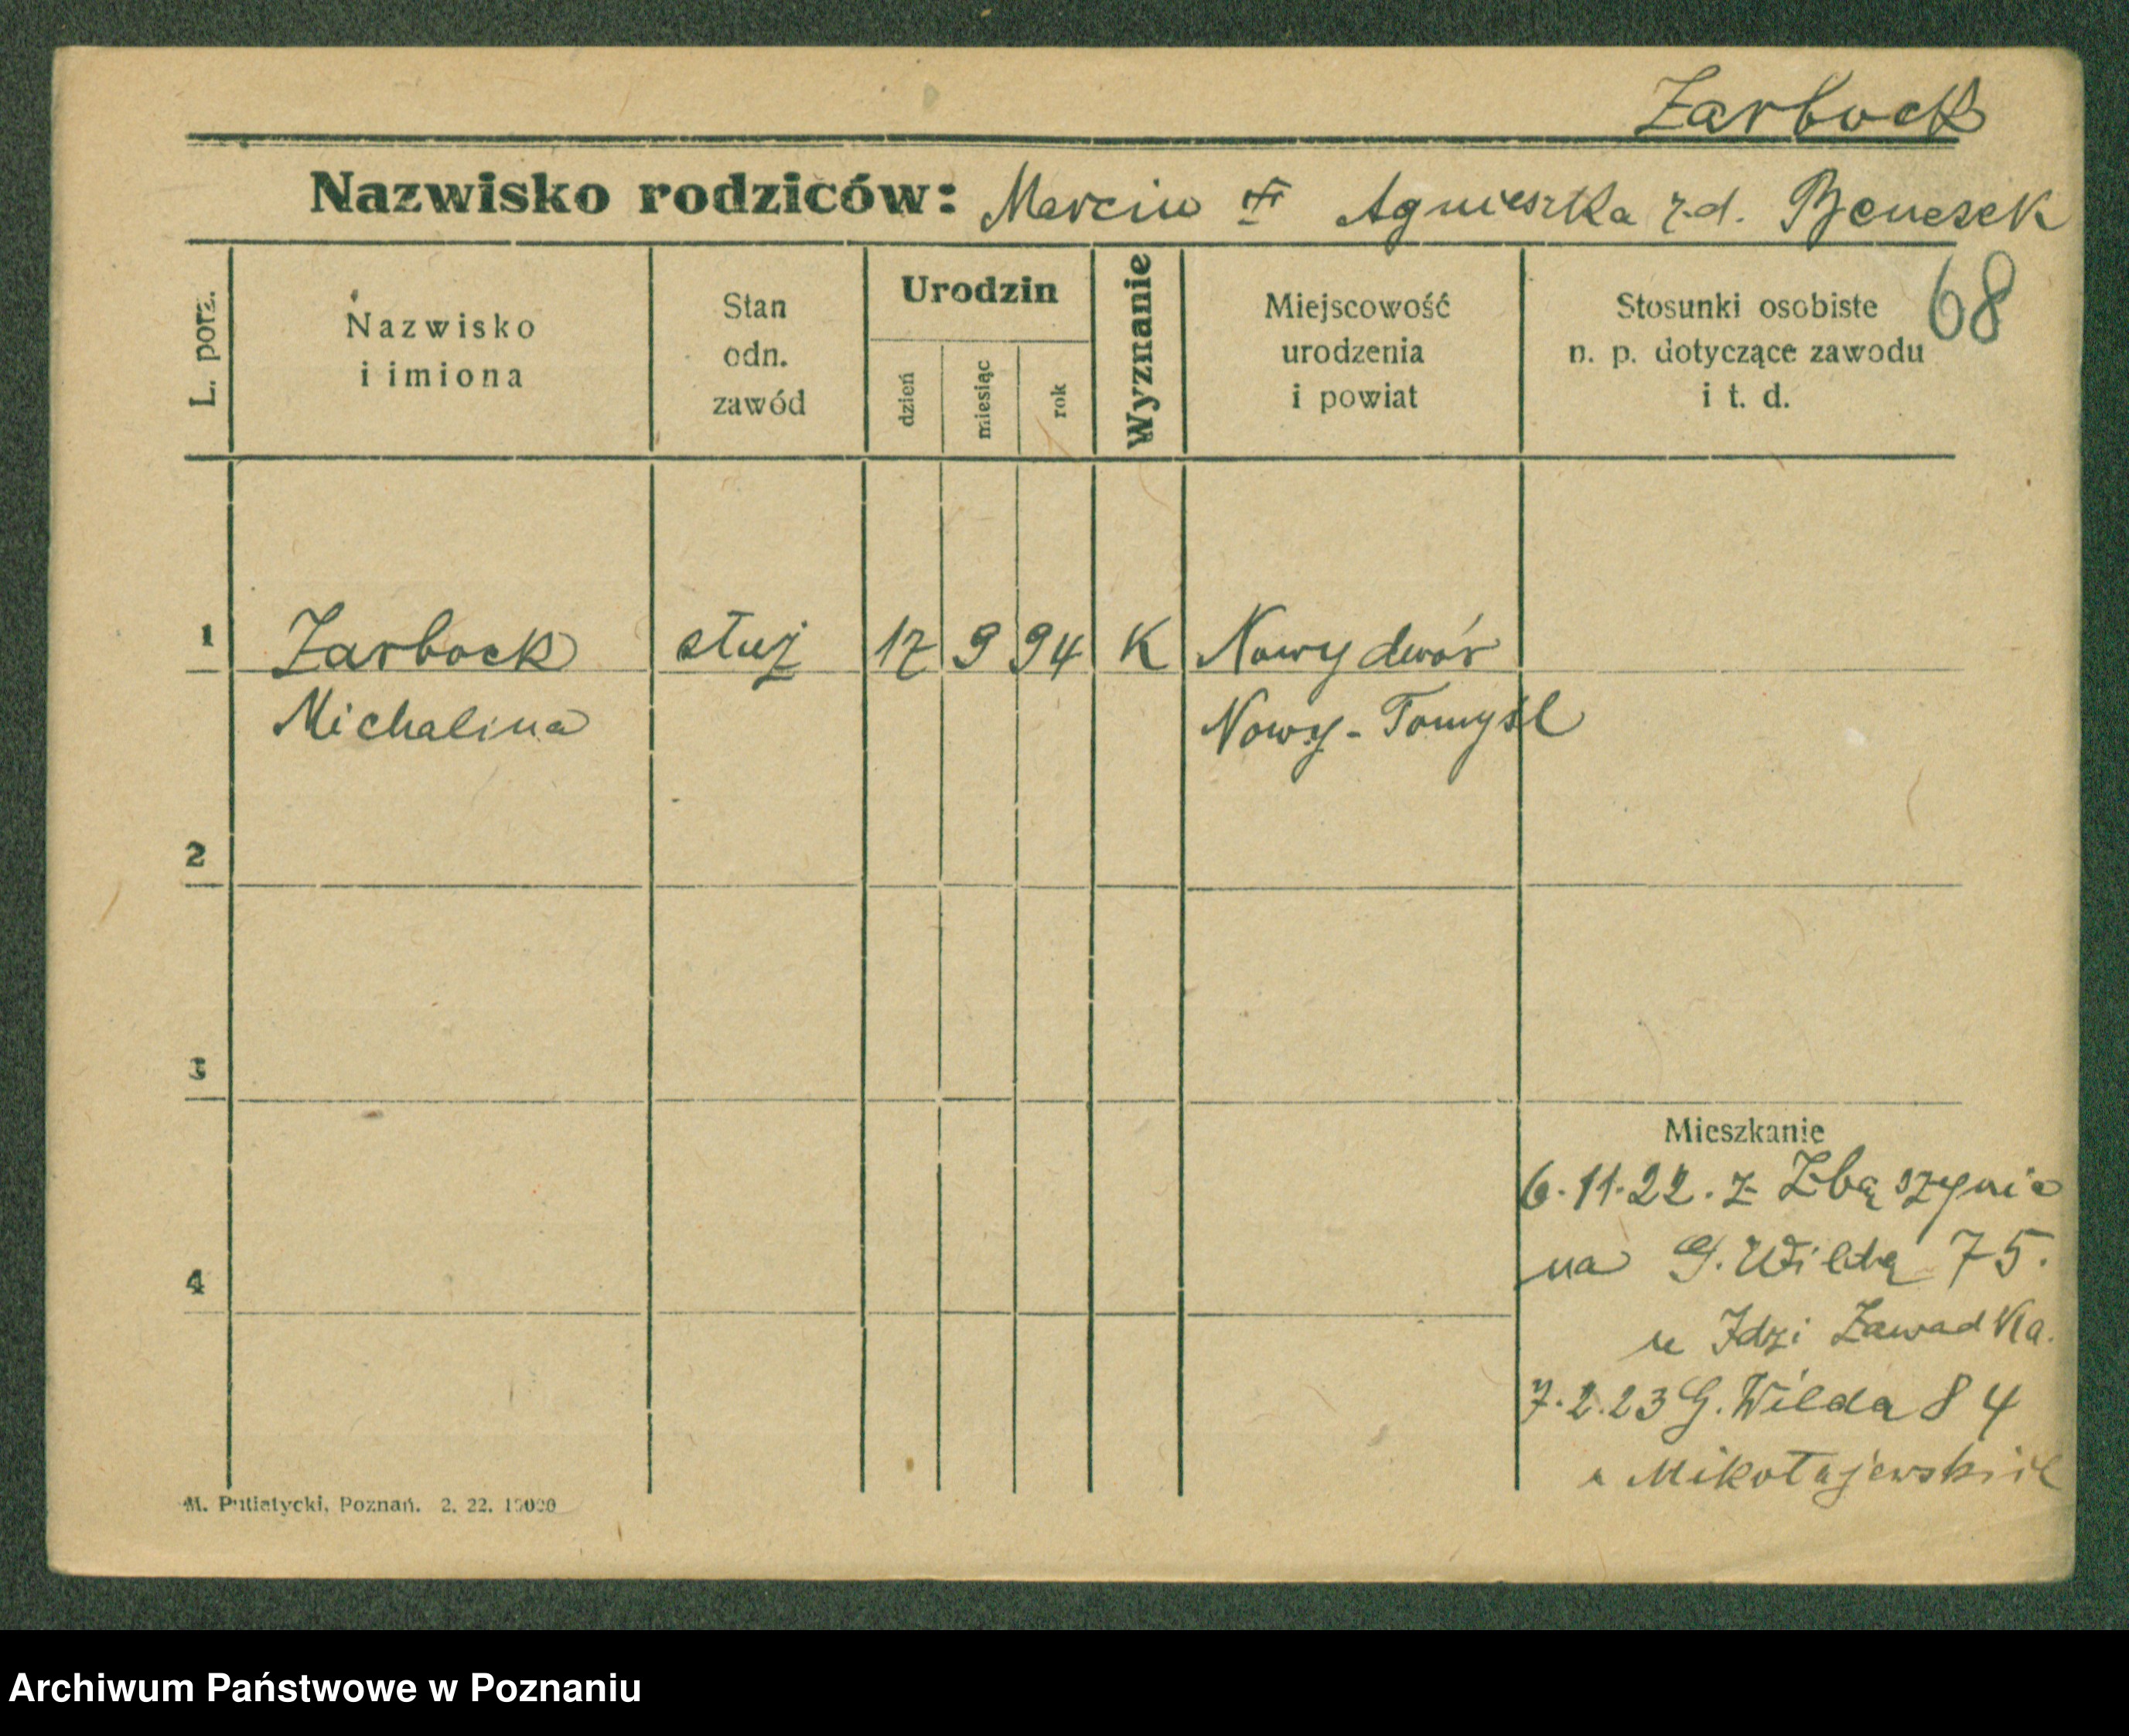 Zarbock
Nazwisko rodziców: Marcin Agnieszka z.d. Benesek
68
L. porz.
Nazwisko
i imiona
Stan
odn.
zawód
Urodzin
dzień
miesiąc
rok
Wyznanie
Miejscowość
urodzenia
i powiat
Stosunki osobiste
n. p. dotyczące zawodu
i t. d.
1 Zarbock służ 17 9 94 K Nowy dwór
Michalina Nowy-Tomyśl
2
3
4
Mieszkanie
6.11.22. z Zbąszynia
na G. Wildą 75.
u Idzi Zawadka.
7.2.23 G. Wilda 84
u Mikołajewskich
M. Putiatycki, Poznań. 2. 22.
Archiwum Państwowe w Poznaniu